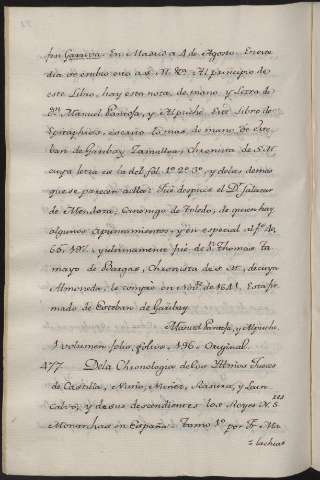 fin Garivia. En Madrid a 4 de Agosto. En este
dia se embio esto a S. M. Rl. Al principio de
este Libro, hay esta nota, de mano, y letra de
Dn. Manuel Pantoja, y Alpuche. Este Libro de
Epitaphios, escrito lo mas de mano de Este-
ban de Garibay Zamalloa, Chronista de S. M.
cuya letra es la del fol. 1º 2º 3º, y de las demas
que se parecen a ella: Fue despues el Dr. Salazar
de Mendoza, Canonigo de Toledo, de quien hay
algunos apuntamientos, y en especial al fº. 40,
66, 197. y ultimamente fue de Dn. Thomas Ta
mayo de Bargas, Chronista de S. M., de cuya
Almoneda, le compré en Novre. de 1641. Esta fir
mado de Esteban de Garibay
Manuel Pantoja, y Alpuche.
1 volumen folio, folios, 196. Original.
477 De la Chronologia de los Ultimos Jueces
de Castilla, Nuño, Nuñez, Rasura, y Lain
Calvo, y de sus descendientes los Reyes N. S.res
Monarchas en España. Tomo 1º por Fr. Ma
lachias